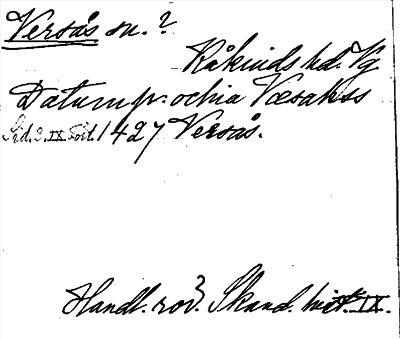 Versås sn. ?
Kåkinds hd. Vg
Datum pr. ochia Væsakss
Sid. 3. IX Fört. 1427 Versås.
Handl. rör. Skand. hist. IX.